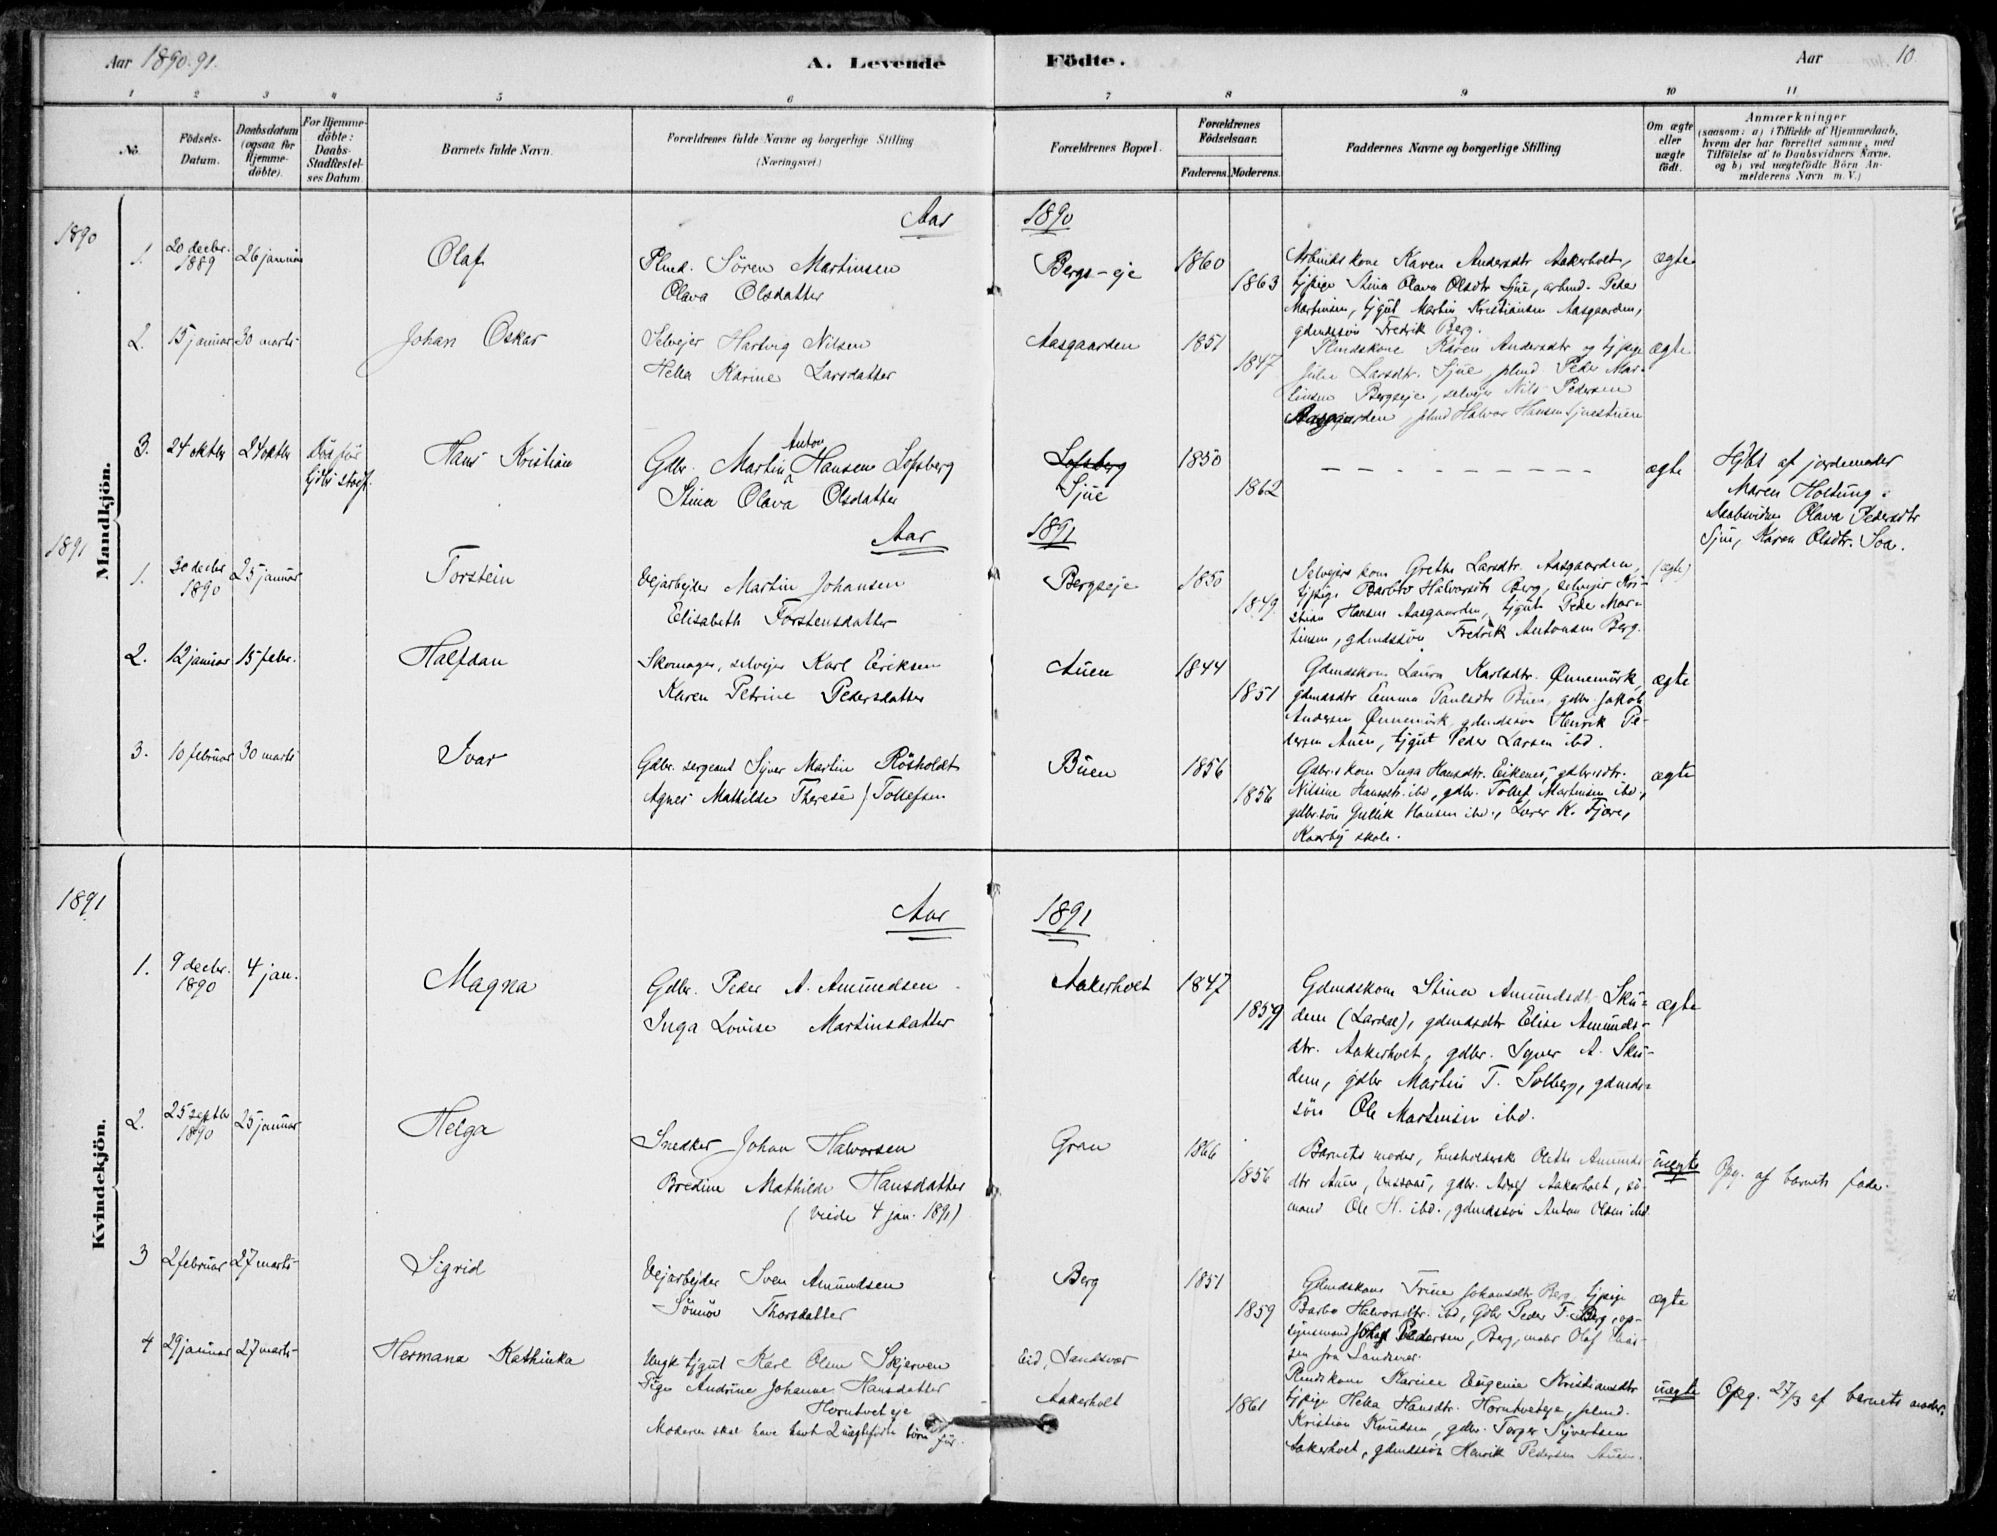 Aar 1890-91.
A. Levende Födte.
Aar 10
1 2 3 4 5 6 7 8 9 10 11
No.
Födsels-
Datum.
Daabsdatum
(ogsaa for
Hjemme-
döbte).
For Hjemme-
döbte:
Daabs-
Stadfæstel-
ses Datum
Barnets fulde Navn.
Forældrenes fulde Navne og borgerlige Stilling
(Næringsvei)
Forældrenes Bopæl.
Forældrenes
Födselsaar.
Faderens. Moderens.
Faddernes Navne og borgerlige Stilling
Om ægte
eller
uægte
födt.
Anmærkninger
(saasom: a) i Tilfælde af Hjemmedaab,
hvem der har forrettet samme, med
Tilföielse af to Daabsvidners Navne,
og b) ved uægtefödte Börn An-
melderens Navn m. V.)
Mandkjön.
1890
Aar 1890
1.
20 decbr.
1889
26 januar
Olaf
Plmd. Sören Martinsen
Olava Olsdatter
Bergs-eje
1860
1863
Arbmdskone Karen Andersdtr Aakerholt,
tjpige Stina Olava Olsdtr Sjue, arbmd. Peder
Martinsen, tjgut Martin Kristiansen Aasgaarden,
gdmdssön Fredrik Berg.
ægte
2.
15 januar
30 marts
Johan Oskar
Selvejer Hartvig Nilsen
Hella Karine Larsdatter
Aasgaarden
1851
1847
Plmdskone Karen Andersdtr og tjpige
Julie Larsdtr. Sjue, plmd Peder Mar-
tinsen Bergseje, selvejer Nils Pedersen
Aasgaarden, plmd Halvor Hansen Sjuestuen
ægte
3.
24 oktbr
24 oktbr
Död för
Hans Kristian
Gdbr. Martin Anton Hansen Lofsberg
Stina Olava Olsdatter
Lofsberg
Sjue
1850
1862
ægte
Hjdbt af jordemoder
Maren Holtung.
Daabsvidner Olava Pedersdtr
Sjue, Karen Olsdtr.
1891
Aar 1891
1.
30 decbr
1890
25 januar
Torstein
Vejarbejder Martin Johansen
Elisabeth Torstensdatter
Bergseje
1850
1849
Selvejers kone Grethe Larsdtr. Aasgaarden,
tjpige Barbro Halvorsdtr Berg, selvejer Kri-
stian Hansen Aasgaarden, tjgut Peder Mar-
tinsen, gdmdssön Fredrik Antonsen Berg.
(ægte)
2.
12 januar
15 febr.
Halfdan
Skomager, selvejer Karl Eriksen
Karen Petrine Pedersdatter
Auen
1844
1851
Gdmdskone Laura Karlsdtr. Ønnemörk,
gdmdsdtr Emma Paulsdtr Buen, gdbr. Jakob
Andersen Ønnemörk, gdmdssön Henrik Pe-
dersen Auen, tjgut Peder Larsen ibd.
ægte
3.
10 februar
30 marts
Ivar
Gdbr. sergeant Syver Martin Rösholdt
Agnes Mathilde Therese Tollefsen
Buen
1856
1856
Gdbr.s kone Inga Hansdtr. Eikenes, gdbr.sdtr.
Nilsine Hansdtr. ibd, gdbr. Tollef Martinsen ibd,
gdbr.sön Gullik Hansen ibd., Lærer K. Fjære,
Kaarby skole.
ægte
Kvindekjön.
1891
Aar 1891
1.
9 decbr.
1890
4 jan.
Magna
Gdbr. Peder A. Amundsen
Inga Lovise Martinsdatter
Aakerholt
1847
1859
Gdmdskone Stina Amundsdtr Sku-
dem (Lardal), gdmdsdtr Elise Amunds-
dtr. Aakerholt, gdbr. Syver A. Sku-
dem, gdbr Martin T. Solberg, gdmds-
sön Ole Martinsen ibd.
ægte
2.
25 septbr
1890
25 januar
Helga
Snedker Johan Halvorsen
Bredine Mathilde Hansdatter
(viede 4 jan. 1891)
Gran
1866
1856
Barnets moder, husholderske Olette Amunds-
dtr Auen, gdbr. Adolf Aakerholt, sö-
mand Ole H. ibd., gdmdssön Anton Olsen ibd
uægte
Opg. af barnets fader.
3
2 februar
27 marts
Sigrid
Vejarbejder Sven Amundsen
Sönnöv Thorsdatter
Berg
1851
1859
Gdmdskone Trine Johansdtr Berg, tjpige
Barbro Halvorsdtr. ibd, Gdbr Peder T. Berg, op-
synsmand Johan Pedersen, Berg, maler Olaf
sen fra Sandsver.
ægte
4
29 januar
27 marts
Hermana Kathinka
Ungk. tjgut Karl Olsen Skjerven
Pige Andrine Johanne Hansdatter
Horntvet eje
Moderen skal have havt 2 uægtefödte börn för.
Eid, Sandsvær
Aakerholt
1861
Plmdskone Karine Eugenie Kristiansdtr
tjpige Hella Hansdtr. Horntveteje, plmd.
Kristian Knudsen, gdbr. Torger Syvertsen
Aakerholt, gdmdssön Henrik Pedersen Auen.
uægte
Opg. 27/3 af barnets moder.